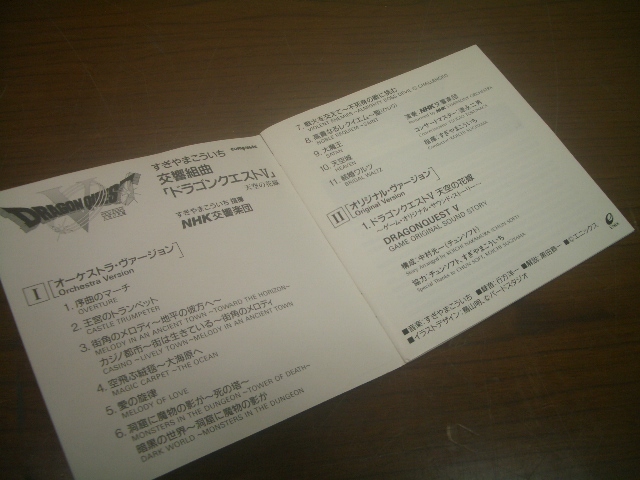 DRAGON QUEST
すぎやまこういち
交響組曲
「ドラゴンクエストV」
天空の花嫁
すぎやまこういち 指揮
NHK交響楽団
I
[オーケストラ・ヴァージョン]
Orchestra Version
1. 序曲のマーチ
OVERTURE
2. 王宮のトランペット
CASTLE TRUMPETER
3. 街角のメロディ〜地平の彼方へ〜
MELODY IN AN ANCIENT TOWN ~TOWARD THE HORIZON~
カジノ都市〜街は生きている〜街角のメロディ
CASINO ~LIVELY TOWN ~MELODY IN AN ANCIENT TOWN
4. 空飛ぶ絨毯〜大海原へ
MAGIC CARPET ~THE OCEAN
5. 愛の旋律
MELODY OF LOVE
6. 洞窟に魔物の影が〜死の塔〜
MONSTERS IN THE DUNGEON ~TOWER OF DEATH~
暗黒の世界〜洞窟に魔物の影が
DARK WORLD ~MONSTERS IN THE DUNGEON
7. 戦火を交えて〜不死身の敵に挑む
VIOLENT ENEMIES ~ALMIGHTY BOSS DEVIL IS CHALLENGED
8. 高貴なるレクイエム〜聖
NOBLE REQUIEM ~SAINT
9. 大魔王
SATAN
10. 天空城
HEAVEN
11. 結婚ワルツ
BRIDAL WALTZ
演奏: NHK交響楽団
コンサートマスター:
指揮: すぎやまこういち
II
[オリジナル・ヴァージョン]
Original Version
1. ドラゴンクエストV 天空の花嫁
〜ゲーム・オリジナル・サウンド・ストーリー〜
DRAGONQUEST V
GAME ORIGINAL SOUND STORY
構成: 中村光一(チュンソフト)
協力: チュンソフト、すぎやまこういち
■音楽: すぎやまこういち ■録音: 行方洋一 ■解説: 黒田恭一 ■©エニックス
■イラストデザイン: 鳥山明, ©バードスタジオ